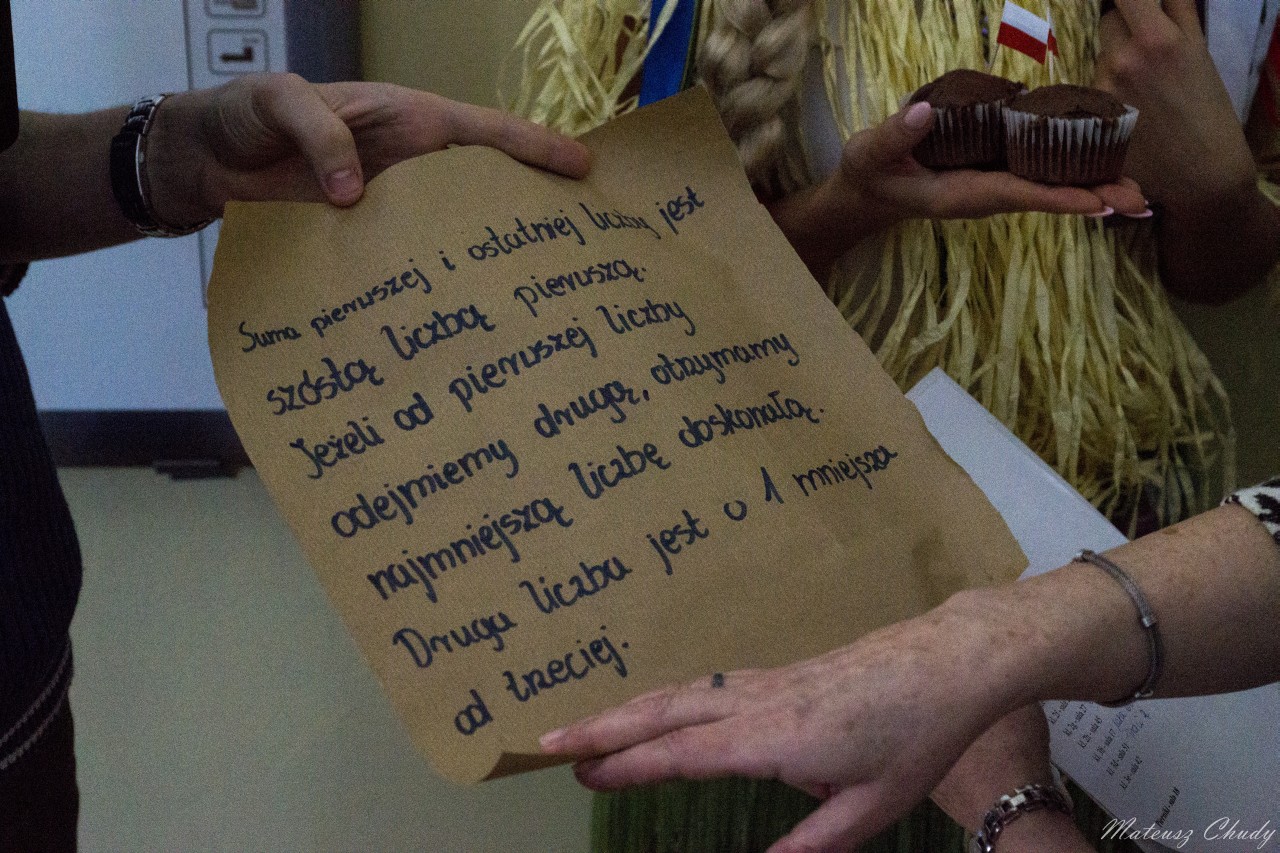 Suma pierwszej i ostatniej liczby jest
szóstą liczbą pierwszą.
Jeżeli od pierwszej liczby
odejmiemy drugą, otrzymamy
najmniejszą liczbę doskonałą.
Druga liczba jest o 1 mniejsza
od trzeciej.
Mateusz Chudy